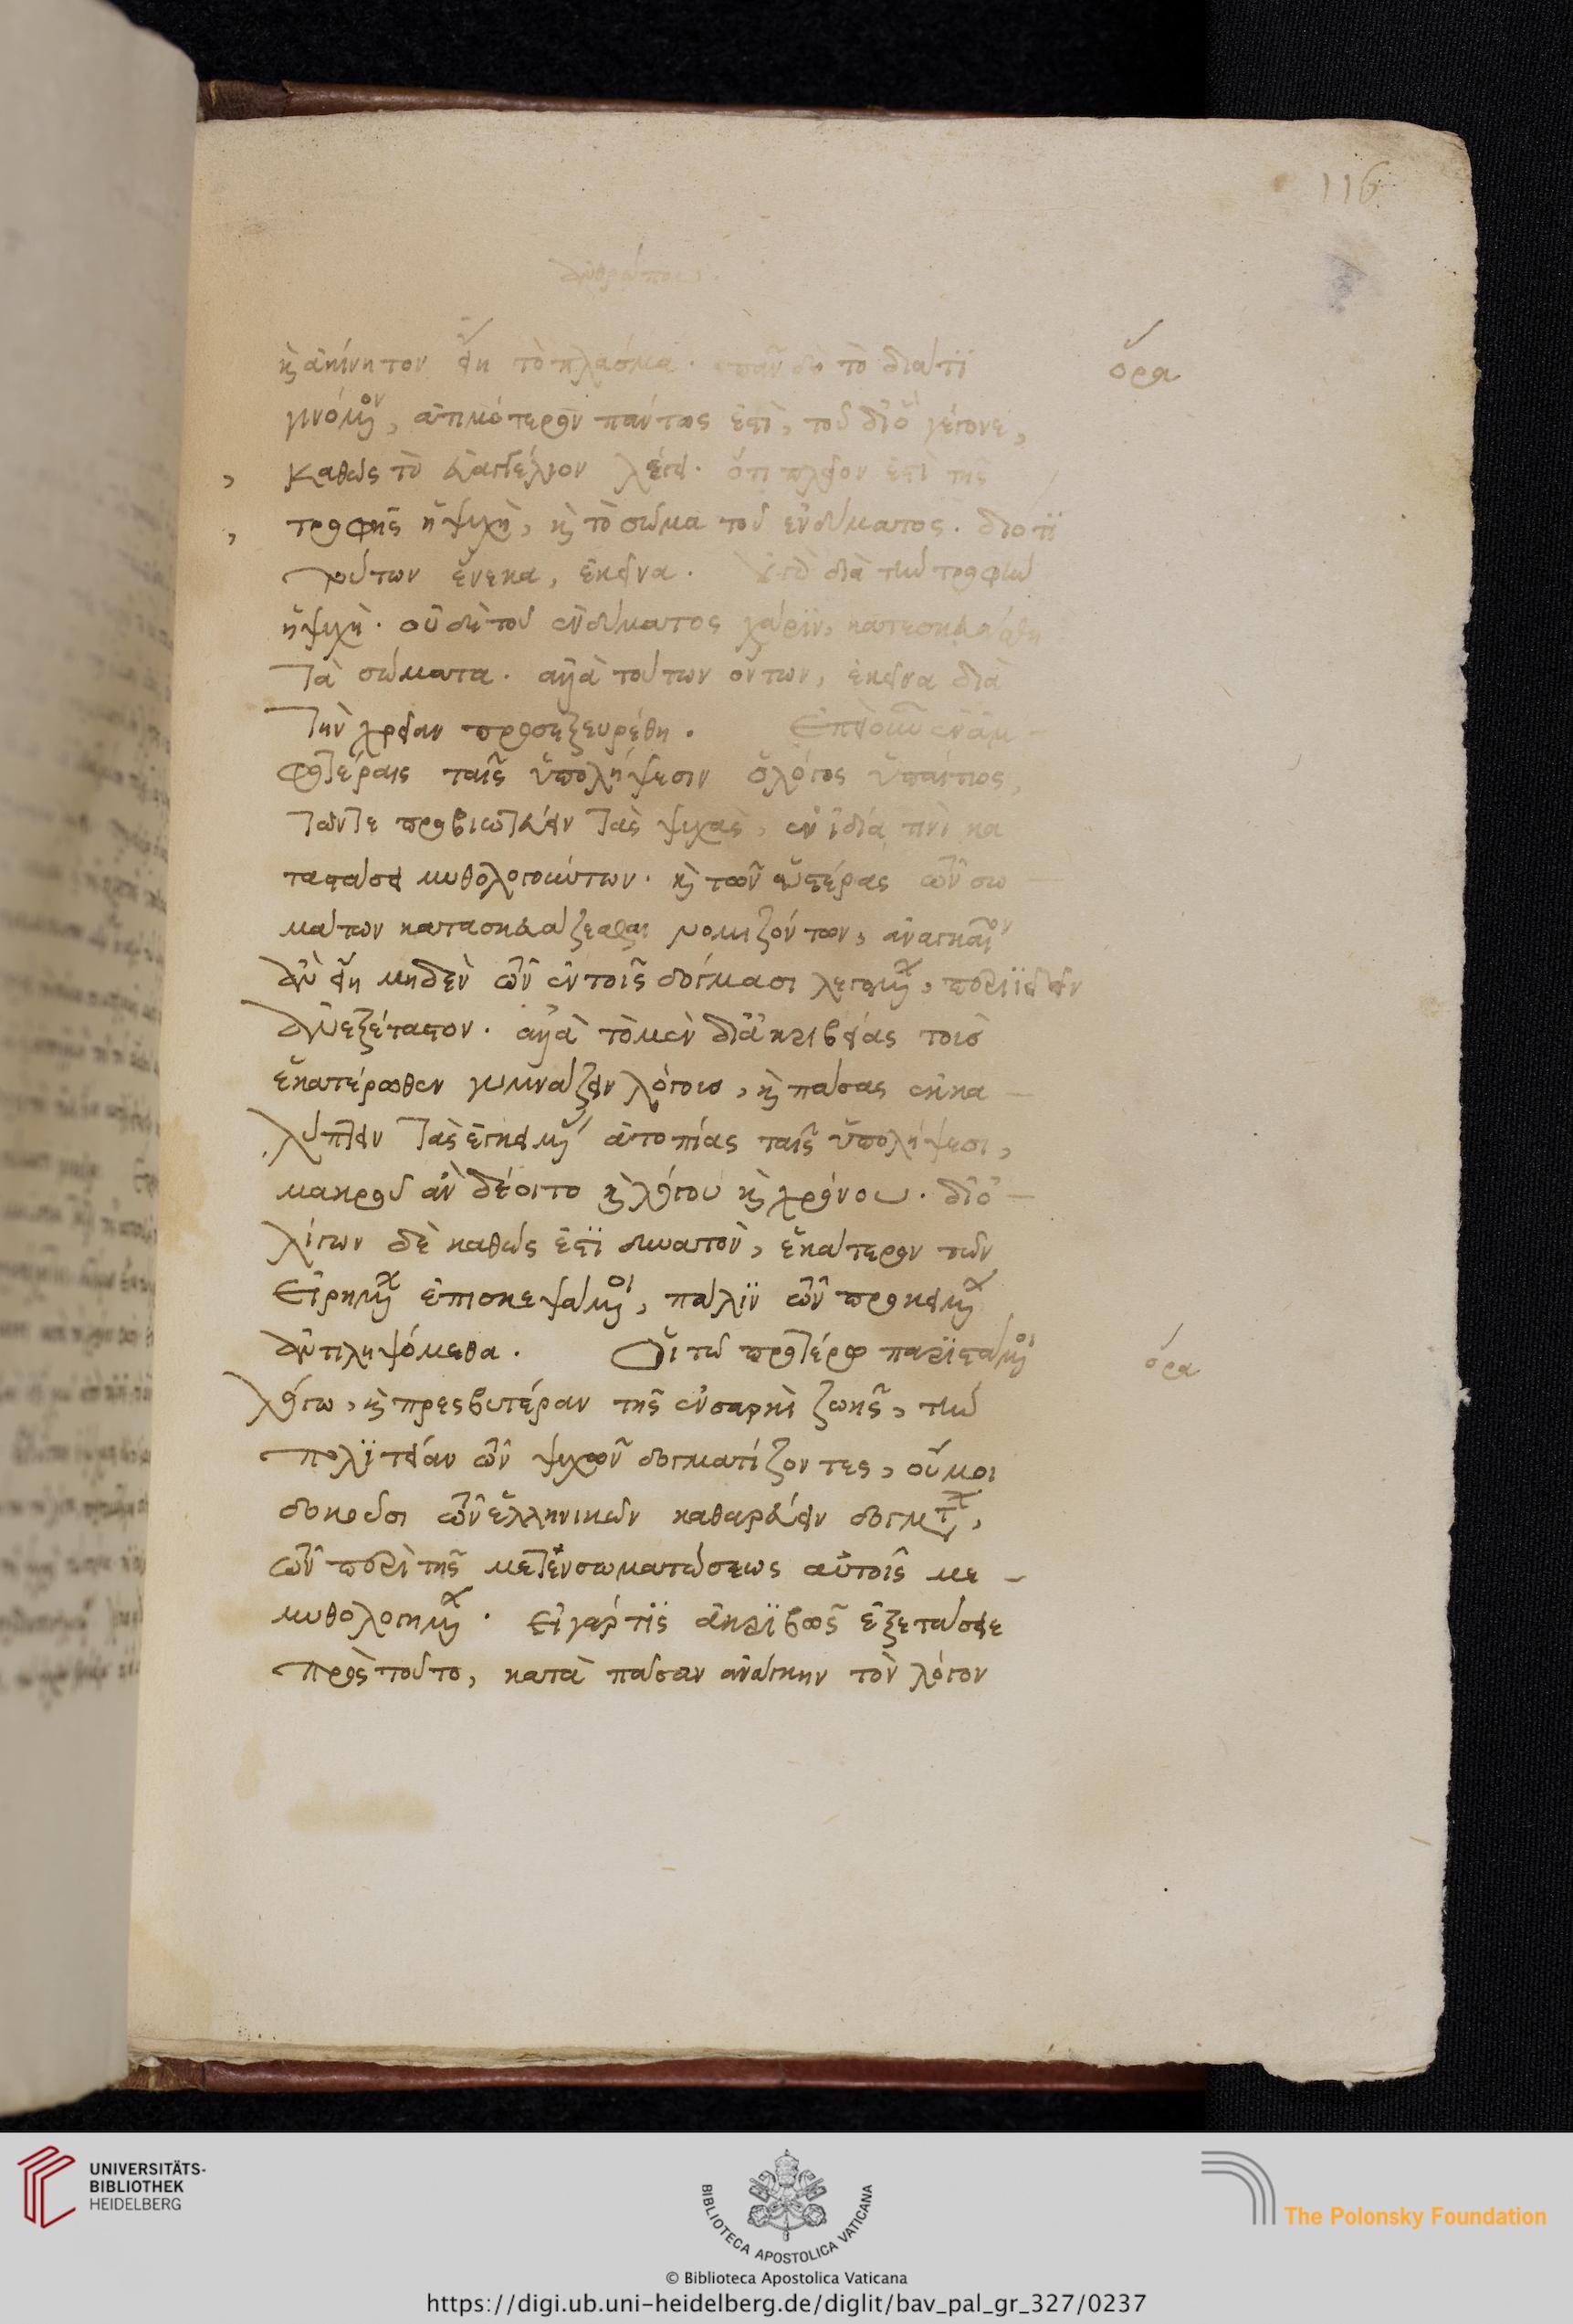 116
καὶ ἀκίνητον εἴη τὸ πλάσμα. πᾶν δὲ τὸ διά τι
ὅρα
γινόμενον, ἀτιμότερον πάντως ἐστὶ, τοῦ δι' ὃ γέγονε,
καθὼς τὸ εὐαγγέλιον λέγει. ὅτι πλεῖον ἐστὶ τῆς
τροφῆς ἡ ψυχὴ, καὶ τὸ σῶμα τοῦ ἐνδύματος. διότι
τούτων ἕνεκα, ἐκεῖνα. διὰ τὴν τροφὴν
ἡ ψυχὴ. οὐδὲ τοῦ ἐνδύματος χάριν, κατεσκευάσθη
τὰ σώματα. ἀλλὰ τούτων ὄντων, ἐκεῖνα διὰ
τὴν χρείαν προσεξευρέθη. Ἐπεὶ οὖν ἐν ἀμ-
φοτέραις ταῖς ὑπολήψεσιν ὁ λόγος ὑπαίτιος,
τῶν τε προβιοτεύειν τὰς ψυχὰς, ἐν ἰδίᾳ τινὶ κα
ταστάσει μυθολογούντων. καὶ τῶν ὑστέρας τῶν σω-
μάτων κατασκευάζεσθαι νομιζόντων, ἀναγκαῖον
ἂν εἴη μηδὲν τῶν ἐν τοῖς δόγμασι λεγομένων, περιϊδεῖν
ἀνεξέταστον. ἀλλὰ τὸ μὲν δι' ἀκριβείας τοῖς
ἑκατέρωθεν γυμνάζειν λόγοις, καὶ πάσας ἐκκα-
λύπτειν τὰς ἐγκειμένας ἀτοπίας ταῖς ὑπολήψεσι,
μακροῦ ἂν δέοιτο καὶ λόγου καὶ χρόνου. δι' ὀ-
λίγων δὲ καθώς ἐστι δυνατὸν, ἑκάτερον τῶν
εἰρημένων ἐπισκεψάμενοι, πάλιν τῶν προκειμένων
ἀντιληψόμεθα. Οἱ τῷ προτέρῳ παριστάμενοι
ὅρα
λόγῳ, καὶ πρεσβυτέραν τῆς ἐν σαρκὶ ζωῆς, τὴν
πολιτείαν τῶν ψυχῶν δογματίζοντες, οὔ μοι
δοκοῦσι τῶν ἑλληνικῶν καθαρεύειν δογμάτων,
τῶν περὶ τῆς μετενσωματώσεως αὐτοῖς με-
μυθολογημένων. εἰ γάρ τις ἀκριβῶς ἐξετάσειε
πρὸς τοῦτο, κατὰ πᾶσαν ἀνάγκην τὸν λόγον
UNIVERSITÄTS-
BIBLIOTHEK
HEIDELBERG
BIBLIOTECA APOSTOLICA VATICANA
The Polonsky Foundation
© Biblioteca Apostolica Vaticana
https://digi.ub.uni-heidelberg.de/diglit/bav_pal_gr_327/0237